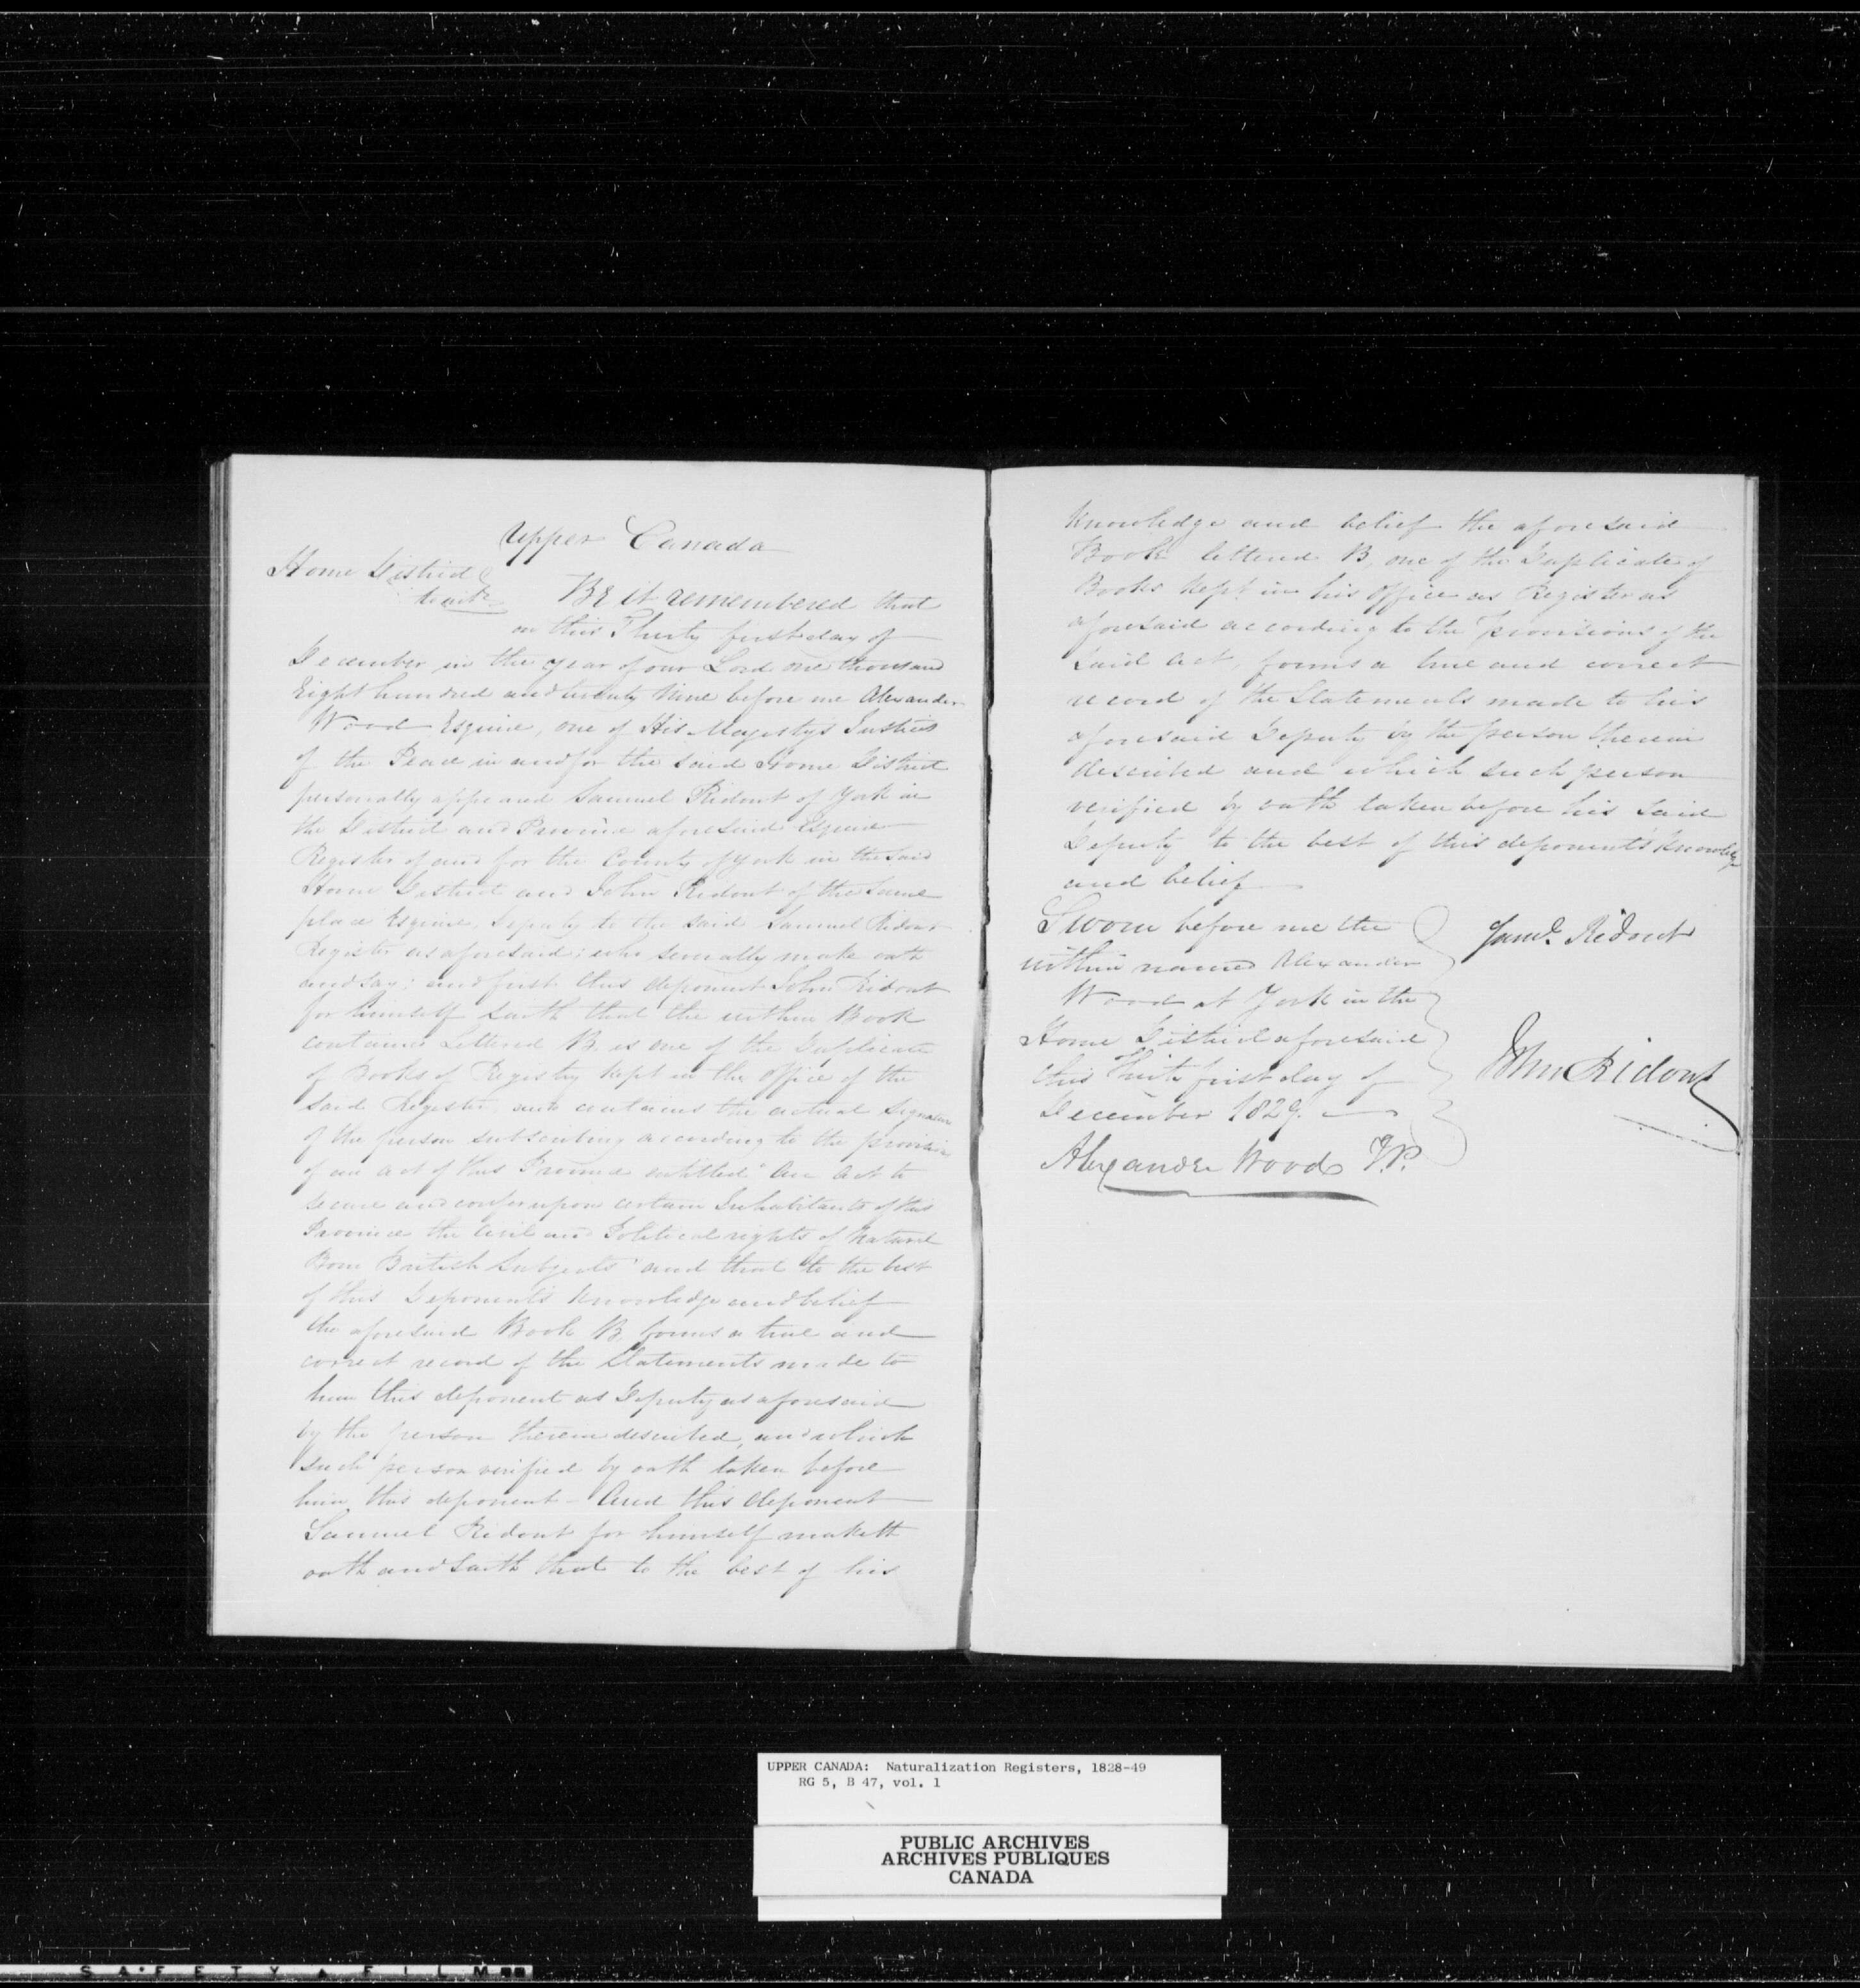 Upper Canada
Home District
to wit
BE it remembered that
on this Thirty first day of
December in the year of our Lord one thousand
Eight hundred and twenty Nine before me Alexander
Wood Esquire, one of His Majestys Justices
of the Peace in and for the said Home District
personally appeared Samuel Ridout of York in
the District and Province aforesaid Esquire
Register of and for the County of York in the said
Home District and John Ridout of the same
place Esquire, Deputy to the said Samuel Ridout
Register as aforesaid; who severally make oath
and say; and first this deponent John Ridout
for himself saith that the within Book
contained Lettered B. is one of the Duplicate
of Books of Registry kept in the office of the
said Register, and contains the actual signature
of the person subscribing according to the provisions
of an act of this Province entitled "An Act to
secure and confer upon certain Inhabitants of this
Province the Civil and Political rights of Natural
Born British Subjects" and that to the best
of this Deponents knowledge and belief
the aforesaid Book B, forms a true and
correct record of the Statements made to
him this deponent as Deputy as aforesaid
by the person therein described, and which
such person verified by oath taken before
him this deponent - And this deponent
Samuel Ridout for himself maketh
oath and saith that to the best of his
Knowledge and belief the aforesaid
Book lettered B, one of the Duplicate of
Books kept in his office as Register as
aforesaid according to the provisions of the
said act, forms a true and correct
record of the Statements made to his
aforesaid Deputy by the person therein
described and which such person
verified by oath taken before his said
Deputy to the best of this deponents knowledge
and belief
Sworn before me the
within named Alexander
Wood at York in the
Home District aforesaid
this Thirty first day of
December 1829.
Alexander Wood J.P.
Saml. Ridout
John Ridout
UPPER CANADA: Naturalization Registers, 1828-49
RG 5, B 47, vol. 1
PUBLIC ARCHIVES
ARCHIVES PUBLIQUES
CANADA
SAFETY FILM